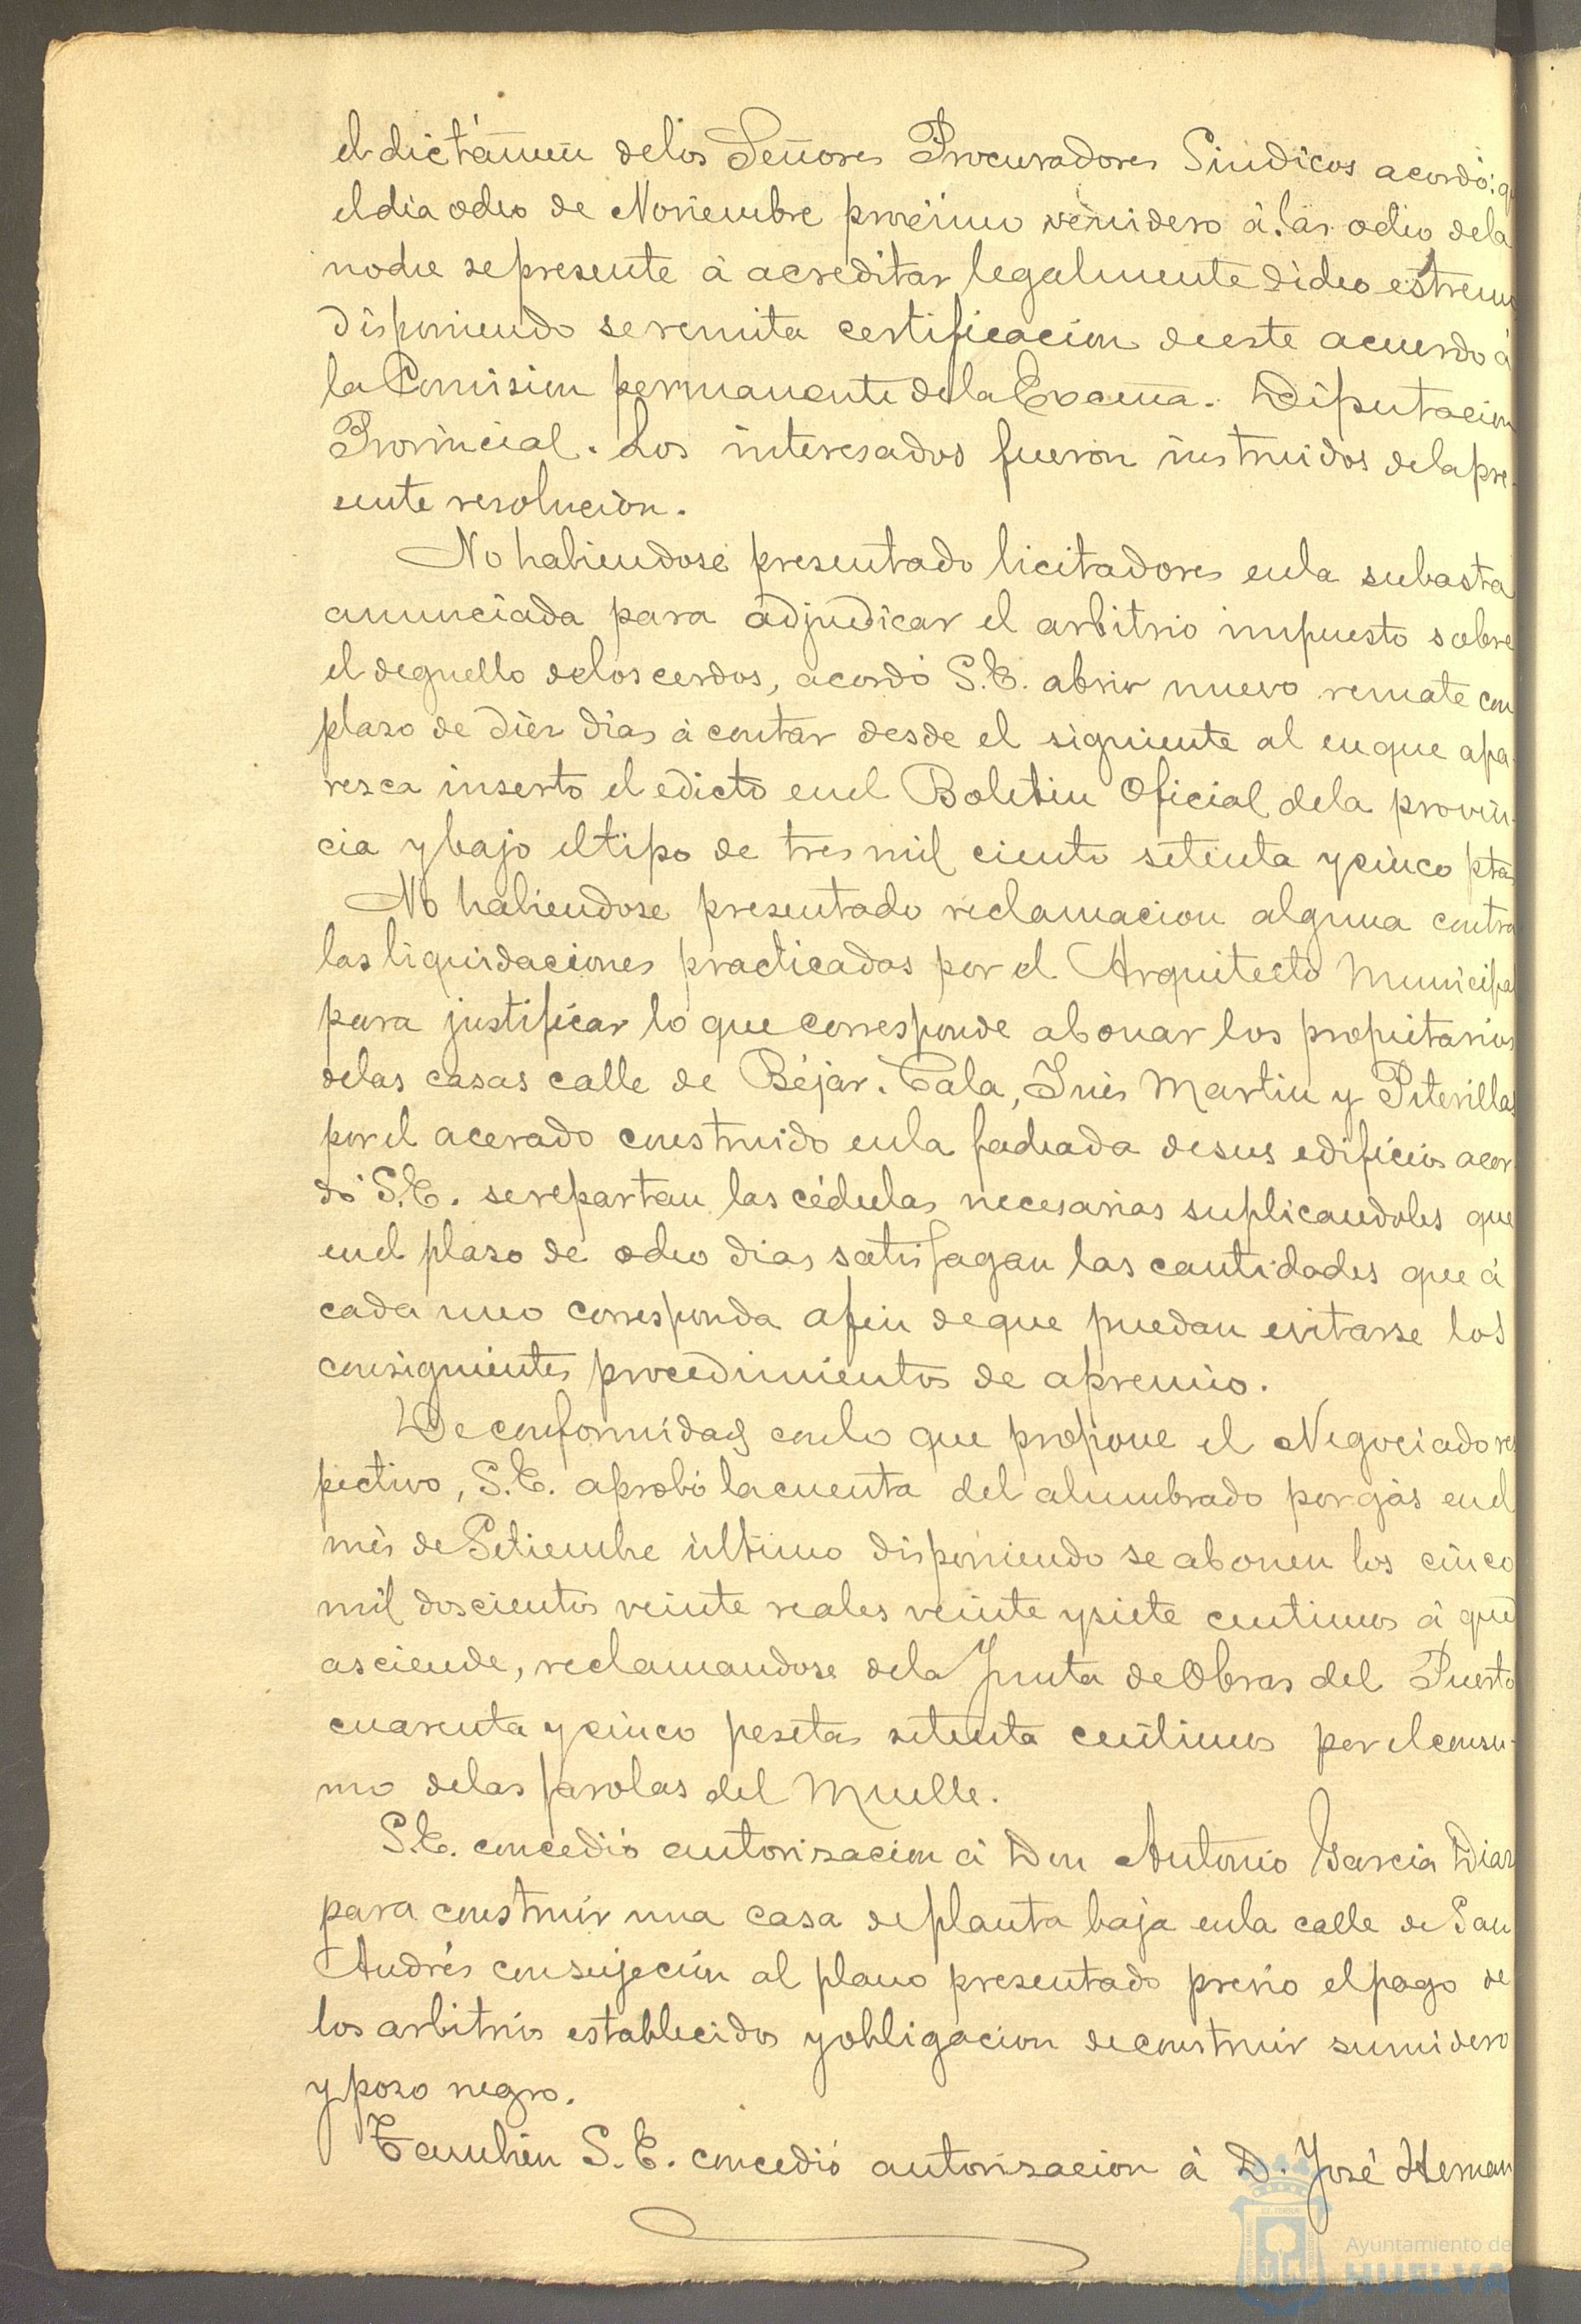 el dictámen delos Señores Procuradores Sindicos acordó: q
el dia ocho de Noviembre procsimo venidero á las ocho dela
noche sepresente á acreditar legalmente dicho estremo
disponiendo seremita certificacion deeste acuerdo á
la Comision permanente dela Excma. Diputacion
Provincial. Los interesados fueron instruidos dela pre-
sente resolucion.
No habiendose presentado licitadores enla subasta
anunciada para adjudicar el arbitrio impuesto sobre
el deguello delos cerdos, acordó S.E. abrir nuevo remate con
plaso de diez dias á contar desde el siguiente al enque apa-
resca inserto el edicto enel Boletin Oficial dela provin-
cia y bajo eltipo de tres mil ciento setenta y cinco ptas
No habiendose presentado reclamacion alguna contra
las liquidaciones practicadas por el Arquitecto Municipal
para justificar lo que corresponde abonar los propietarios
delas casas calle de Béjar. Cala, Inés Martin y Piterillas
por el acerado construido enla fachada desus edificios acor-
dó S.E. serepartan las cédulas necesarias suplicandoles que
enel plaso de ocho dias satisfagan las cantidades que á
cada uno corresponda afin deque puedan evitarse los
consiguientes procedimientos de apremio.
De conformidad conlo que propone el Negociado res
pectivo, S.E. aprobó lacuenta del alumbrado por gás enel
més de Setiembre último disponiendo se abonen los cinco
mil doscientos veinte reales veinte ysiete centimos á que
asciende, reclamandose dela Junta de Obras del Puerto
cuarenta y cinco pesetas setenta centimos por el consu-
mo delas farolas del Muelle.
S.E. concedió autorisacion á Don Antonio Garcia Diaz
para construir una casa deplanta baja enla calle de San
Andrés consujecion al plano presentado previo elpago de
los arbitrios establecidos yobligacion deconstruir sumidero
y poso negro.
Tambien S.E. concedió autorisacion á D. José Hernan
Ayuntamiento de
HUELVA